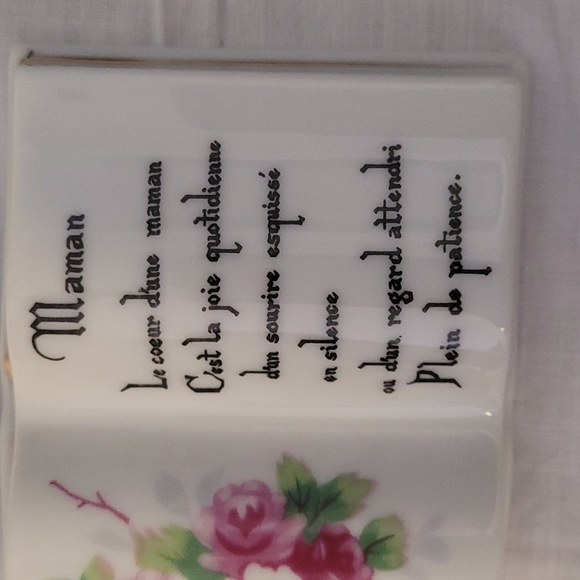 Maman
Le coeur d'une maman
C'est la joie quotidienne
d'un sourire esquissé
en silence
ou d'un regard attendri
Plein de patience.